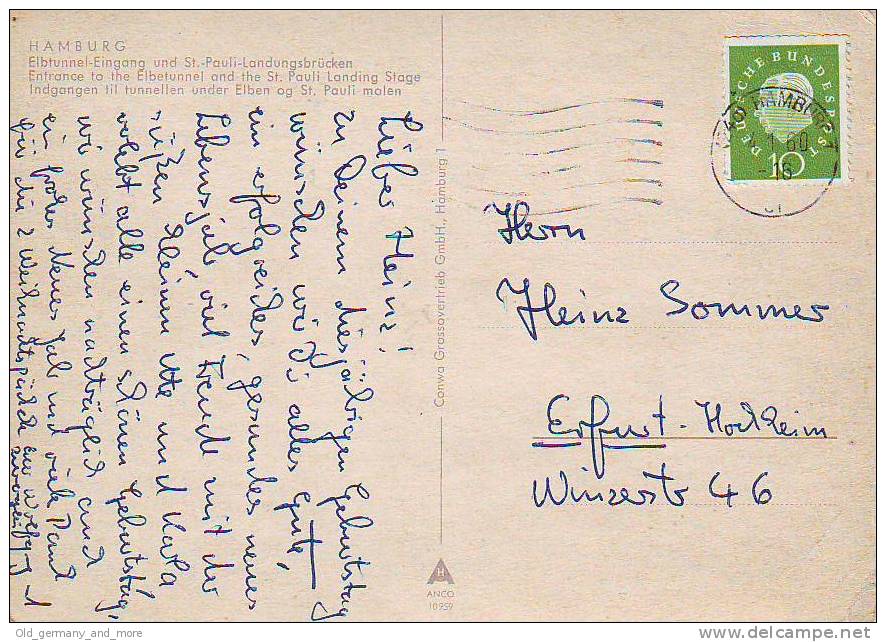 HAMBURG
Elbtunnel-Eingang und St.-Pauli-Landungsbrücken
Entrance to the Elbetunnel and the St. Pauli Landing Stage
Indgangen til tunnellen under Elben og St. Pauli molen
Lieber Heinz!
zu Deinem diesjährigen Geburtstag
wünschen wir Dir alles Gute,
ein erfolgreiches, gesundes neues
Lebensjahr, viel Freude mit der
süßen kleinen Ute und Karla
erlebt alle einen schönen Geburtstag,
wir wünschen nachträglich auch
ein frohes Neues Jahr und viele Dank
für die 2 Weihnachtspäckchen
Conwa Grossovertrieb GmbH., Hamburg 1
DEUTSCHE BUNDESPOST
10
HAMBURG
1 60
-16
Herrn
Heinz Sommer
Erfurt-Hochheim
Winzerstr 46
H
ANCO
10959
Old_germany_and_more
www.delcampe.net